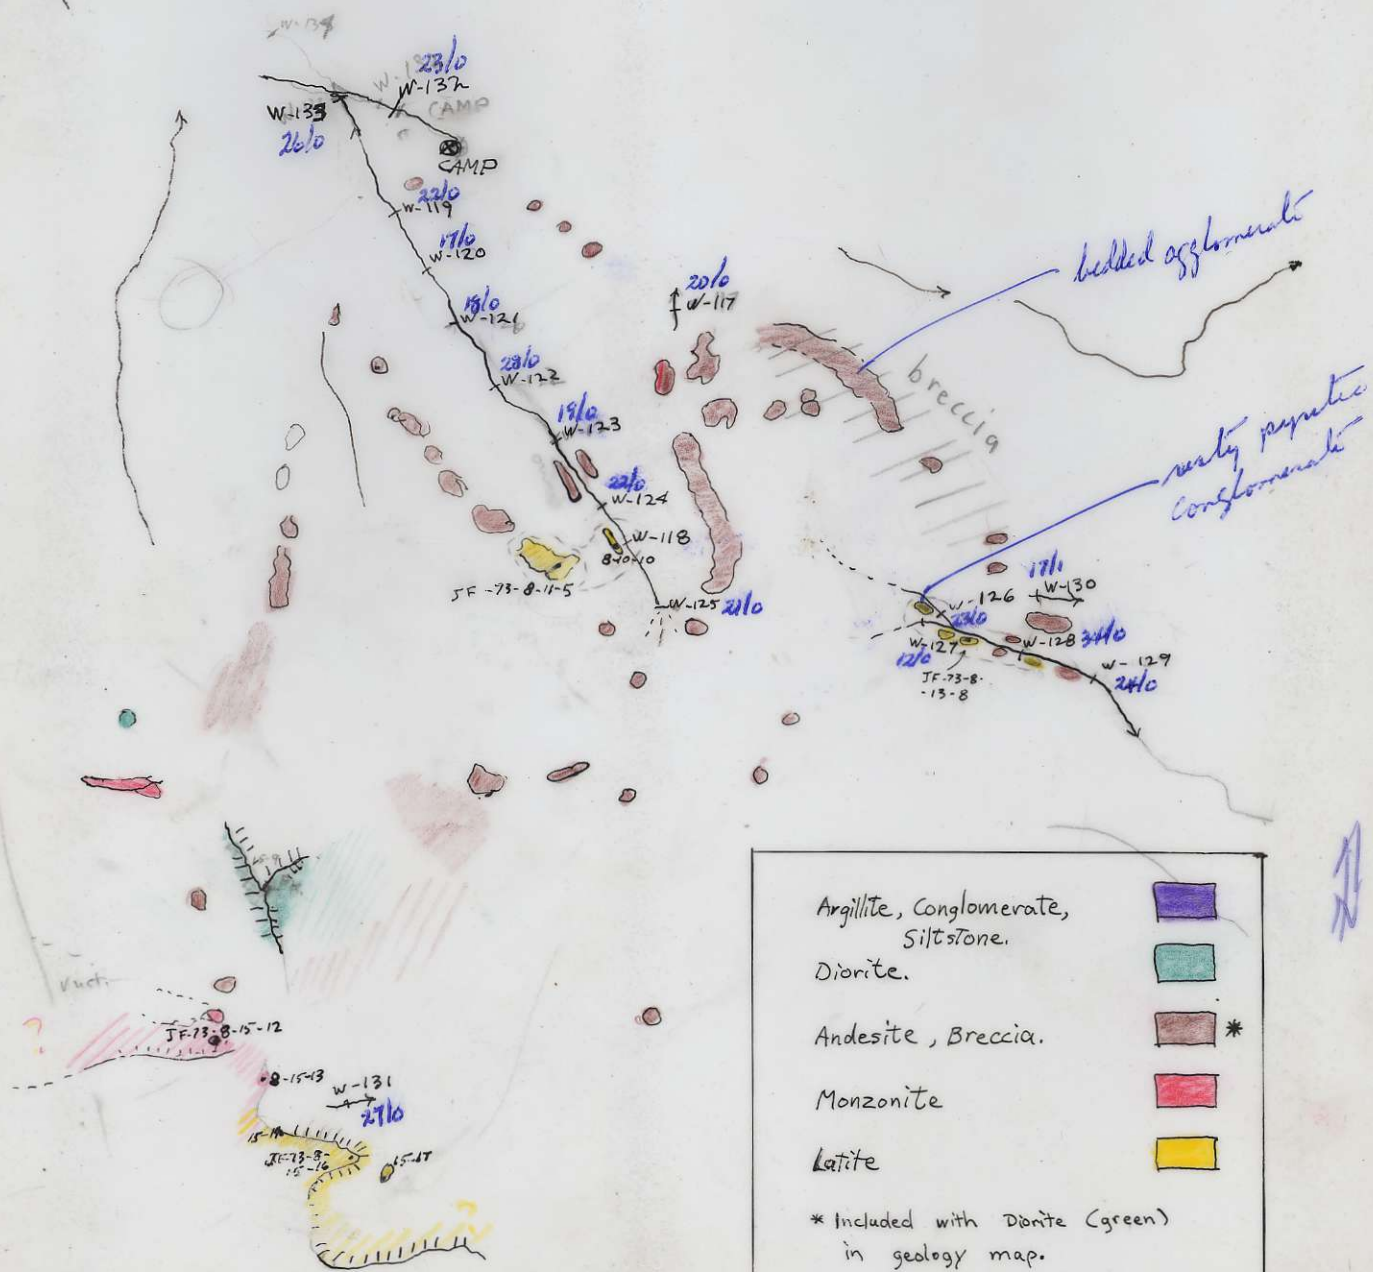 W-134
23/0
W-132
CAMP
W-133
26/0
CAMP
22/0
W-119
17/0
W-120
18/0
W-121
W-122
19/0
W-123
22/0
W-124
W-118
8-10-10
JF-73-8-11-5
W-125 21/0
20/0
W-117
bedded agglomerate
breccia
rusty pyritic
conglomerate
17/1
W-130
W-126
23/0
W-127
12/0
W-128
JF-73-8-
-13-8
W-129
24/0
JF-73-8-15-12
8-15-13
W-131
27/0
JF-73-8-
15-16
15-17
Argillite, Conglomerate,
Siltstone.
Diorite.
Andesite, Breccia. *
Monzonite
Latite
* Included with Diorite (green)
in geology map.